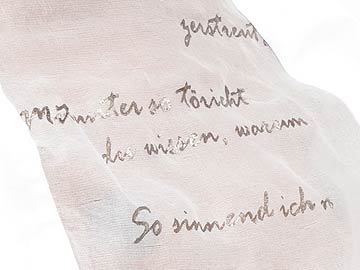 zerstreut
so töricht
wissen, warum
So sinnend ich